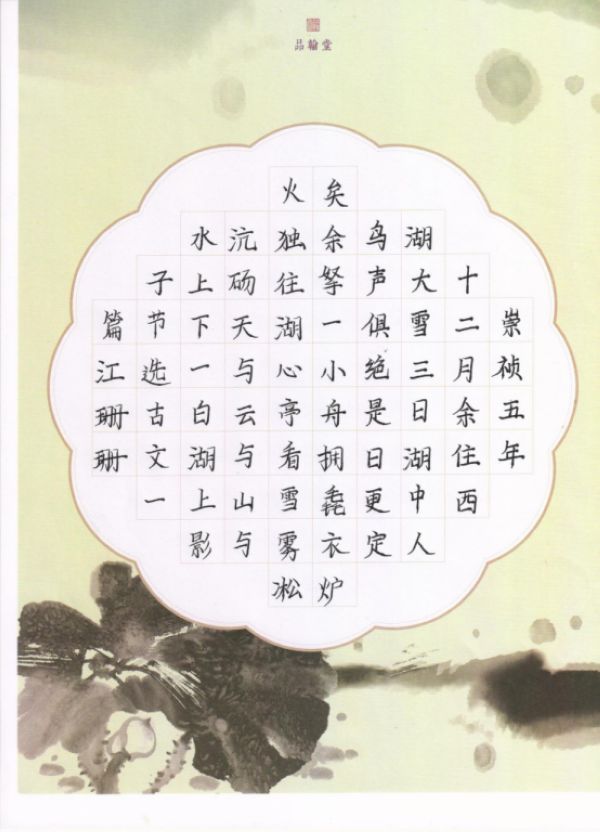 品翰堂
崇祯五年
十二月余住西
湖大雪三日湖中人
鸟声俱绝是日更定
矣余拏一小舟拥毳衣炉
火独往湖心亭看雪雾凇
沆砀天与云与山与
水上下一白湖上影
子节选古文一
篇江珊珊